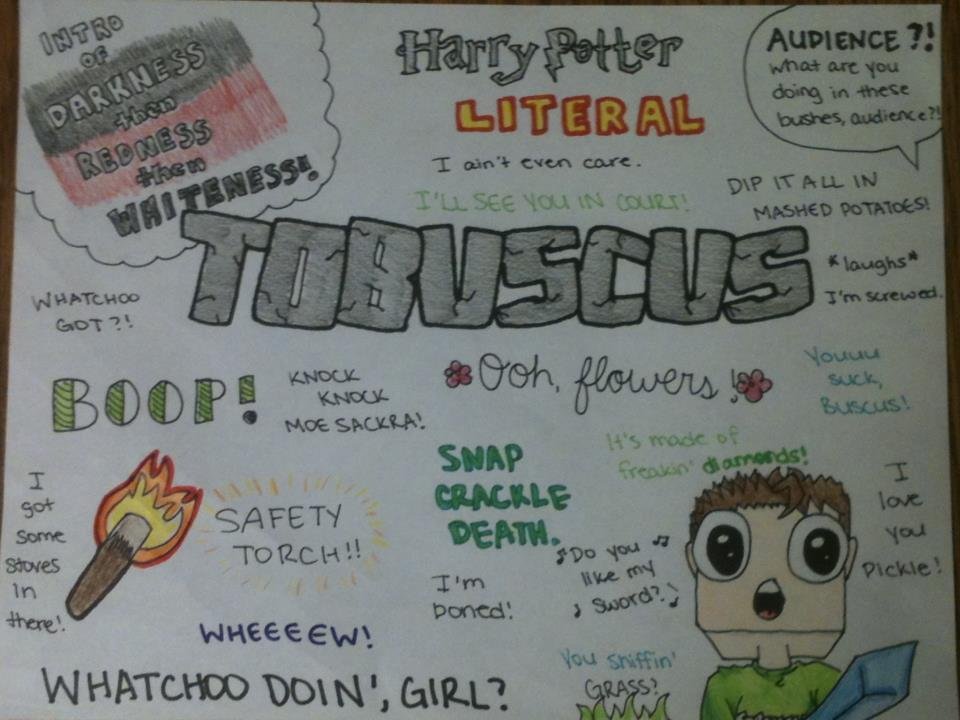 INTRO
OF
DARKNESS
then
REDNESS
then
WHITENESS!
Harry Potter
LITERAL
AUDIENCE ?!
What are you
doing in these
bushes, audience?!
I ain't even care.
I'LL SEE YOU IN COURT!
DIP IT ALL IN
MASHED POTATOES!
TOBUSCUS
*laughs*
I'm screwed.
WHATCHOO
GOT?!
BOOP!
KNOCK
KNOCK
MOE SACKRA!
Ooh, flowers!
Youuu
suck,
Buscus!
I
got
some
stoves
in
there!
SAFETY
TORCH!!
SNAP
CRACKLE
DEATH.
It's made of
freakin' diamonds!
I
love
you
Pickle!
♪Do you ♫
like my
♪ sword?♪
I'm
boned!
WHEEEEW!
You sniffin'
GRASS?
WHATCHOO DOIN', GIRL?